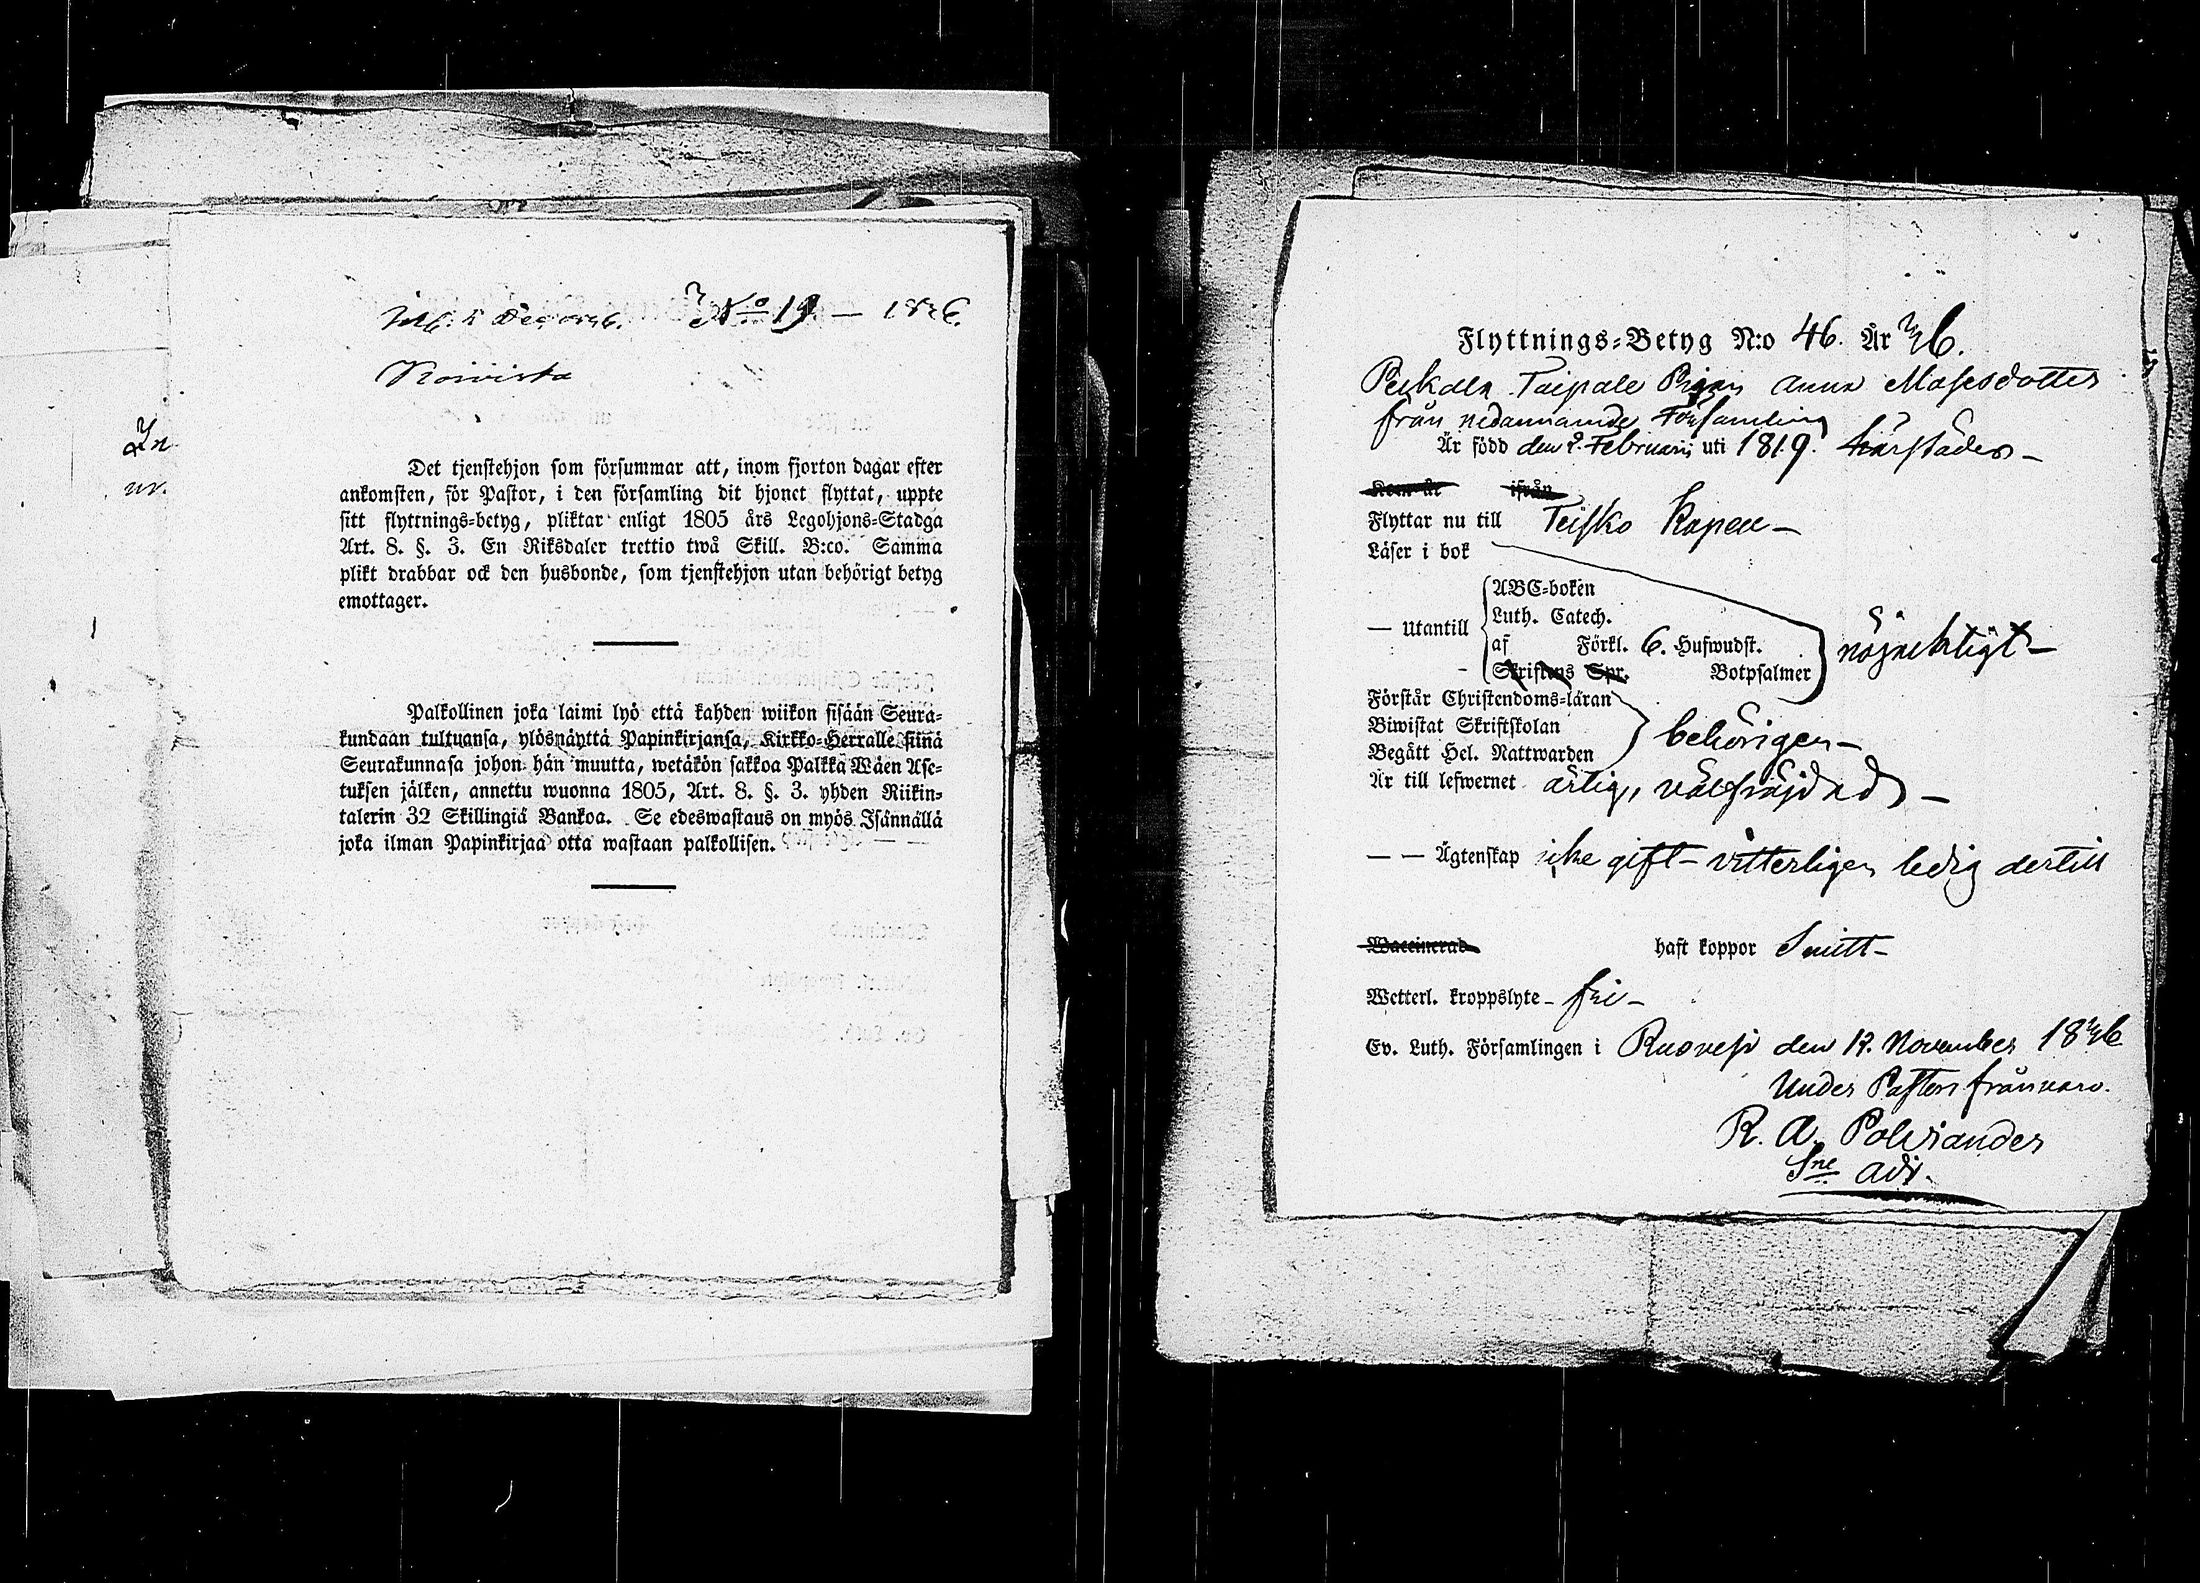 No 19. — 1846.
Koivisto
In
nr.
Det tjenstehjon som försummar att, inom fjorton dagar efter
ankomsten, för Pastor, i den församling dit hjonet flyttat, uppte
sitt flyttnings-betyg, pliktar enligt 1805 års Legohjons-Stadga
Art. 8. §. 3. En Riksdaler trettio twå Skill. B:co. Samma
plikt drabbar ock den husbonde, som tjenstehjon utan behörigt betyg
emottager.
Palkollinen joka laimi lyö että kahden wiikon sisään Seura-
kundaan tultuansa, ylösnäyttä Papinkirjansa, Kirkko-Herralle siinä
Seurakunnasa johon hän muutta, wetäkön sakkoa Palkka Wäen Ase-
tuksen jälken, annettu wuonna 1805, Art. 8. §. 3. yhden Riikin-
talerin 32 Skillingiä Bankoa. Se edeswastaus on myös Isännällä
joka ilman Papinkirjaa otta wastaan palkollisen.
Flyttnings-Betyg N:o 46. År 46.
Pekkala Taipale Pigan Anna Mosesdotter
från nedannämnde Församling
Är född den 2. Februarii uti 1819. härstädes –
Kom år ifrån
Flyttar nu till Teisko Kapell –
Läser i bok
— Utantill
ABC-boken
Luth. Catech.
af Förkl. 6. Hufwudst.
Skriftens Spr. Botpsalmer
nöjaktigt –
Förstår Christendoms-läran
Biwistat Skriftskolan
Begått Hel. Nattwarden
behörigen –
Är till lefwernet ärlig, välfräjdad –
— — Ägtenskap icke gift – vitterligen ledig dertill
Waccinerad haft koppor Smitt –
Wetterl. kroppslyte – fri –
Ev. Luth. Församlingen i Ruovesi den 12. November 1846
Under Pastors frånvaro.
R. A. Polviander
Sne Adj.